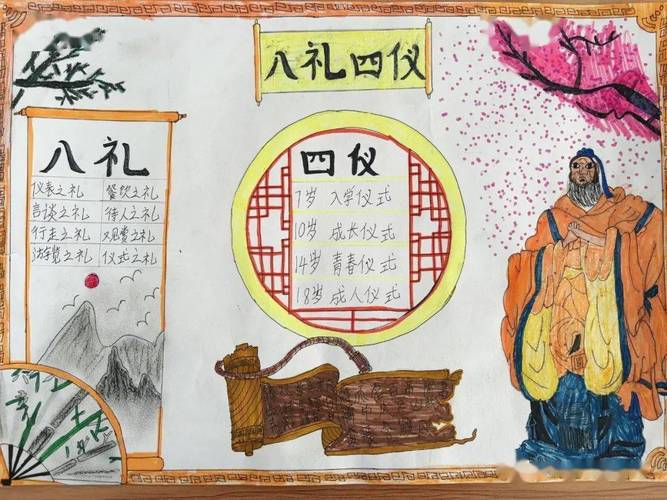 八礼四仪
八礼
仪表之礼 餐饮之礼
言谈之礼 待人之礼
行走之礼 观赏之礼
游览之礼 仪式之礼
四仪
7岁 入学仪式
10岁 成长仪式
14岁 青春仪式
18岁 成人仪式